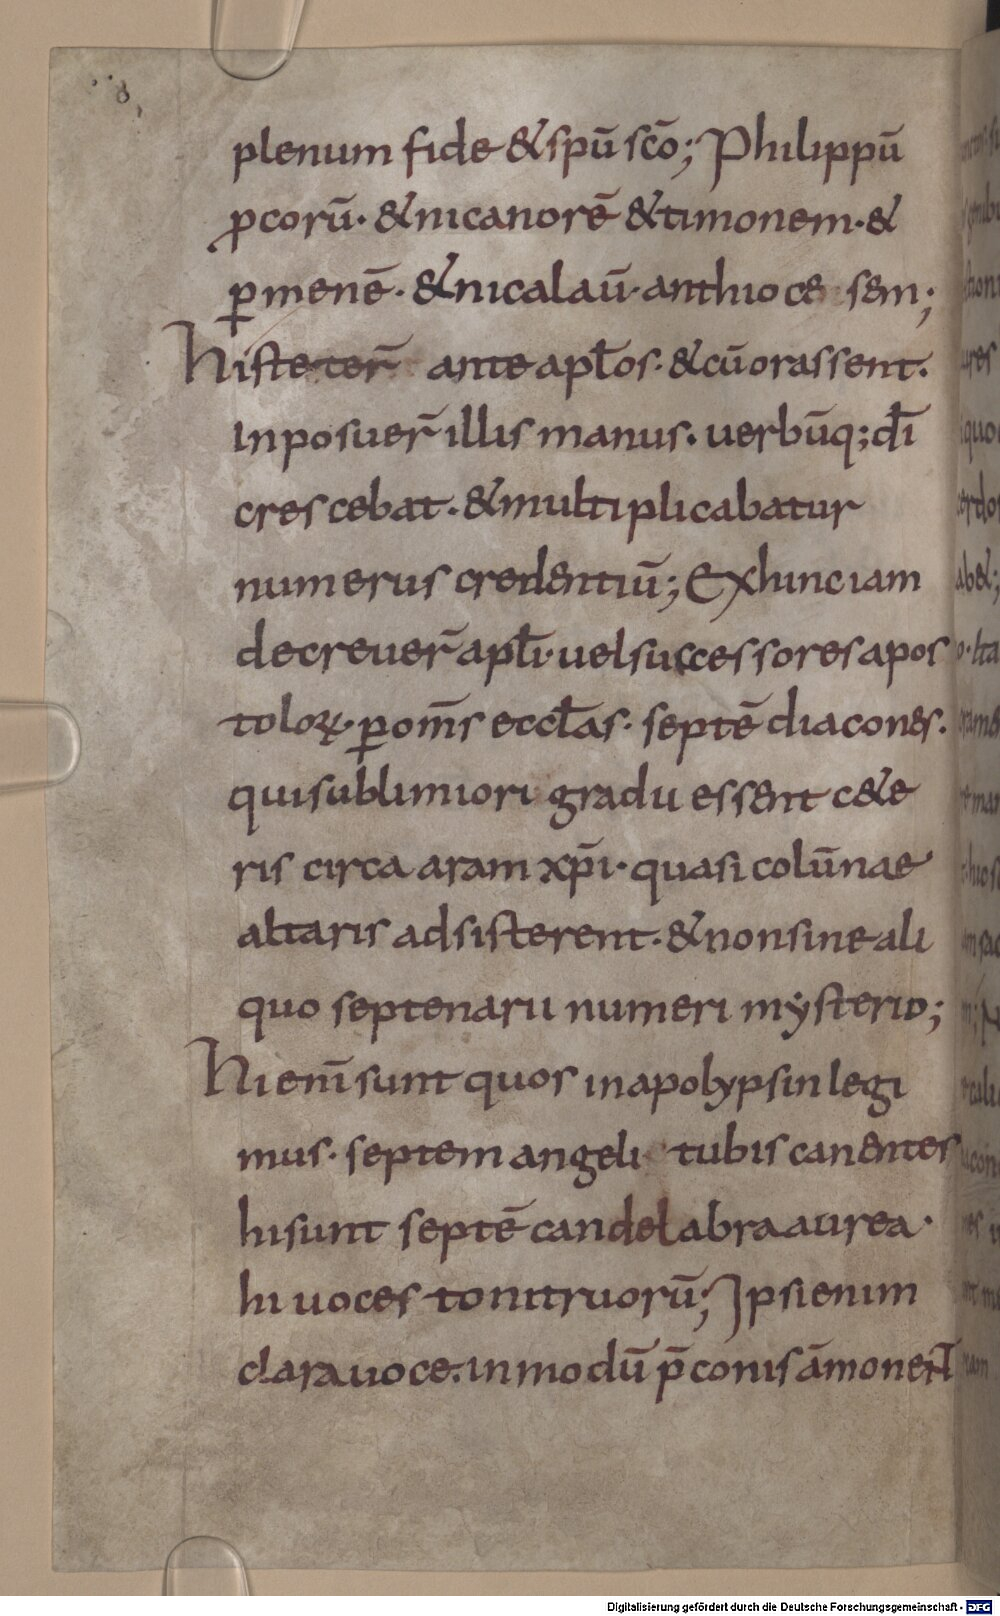 plenum fide & spū scō; Philippū
ꝓcorū· & nicanorē & timonem· &
ꝑmenē· & nicalaū· anthioce sem;
Hi steter̄ ante apłos· & cū orassent·
Inposuer̄ illis manus· uerbūq; dī
crescebat· & multiplicabatur
numerus credentiū; Exhinc iam
decreuer̄ apłi· uel successores apos
toloꝝ· ꝑ om̄s eccłas· septē diacones·
qui sublimiori gradu essent c&e
ris circa aram xp̄i· quasi colūnae
altaris adsisterent· & non sine ali
quo septenarii numeri mẏsterio;
Hi enī sunt quos in apolypsin legi
mus· septem angeli tubis canentes
hi sunt septē candelabra aurea·
hi uoces tonitruorū; Ipsi enim
clara uoce· in modū p̄conis āmonent
Digitalisierung gefördert durch die Deutsche Forschungsgemeinschaft - DFG